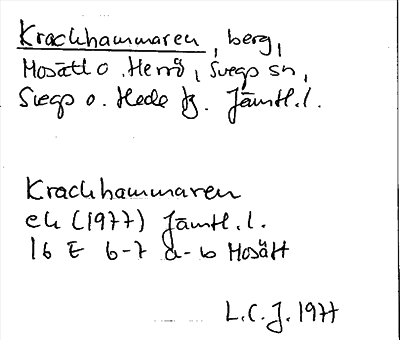 Krackhammaren, berg,
Mosätt o. Herrö, Svegs sn,
Svegs o. Hede tg. Jämtl.l.
Krackhammaren
ek (1977) Jämtl.l.
16 E 6-7 a-b Mosätt
L.C.J. 1977